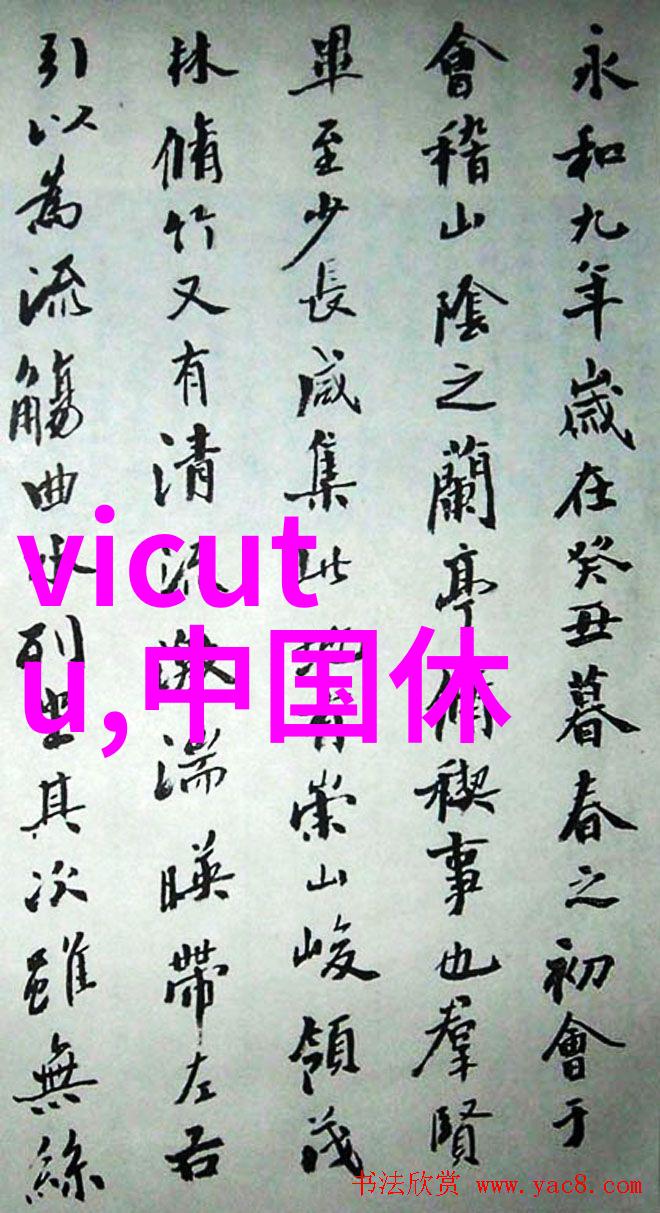 永和九年歲在癸丑暮春之初會于
會稽山陰之蘭亭脩稧事也羣賢
畢至少長咸集此地有崇山峻領茂
林脩竹又有清流激湍暎帶左右
引以為流觴曲水列坐其次雖無絲
vicut
u,中国休
书法欣赏 www.yac8.com